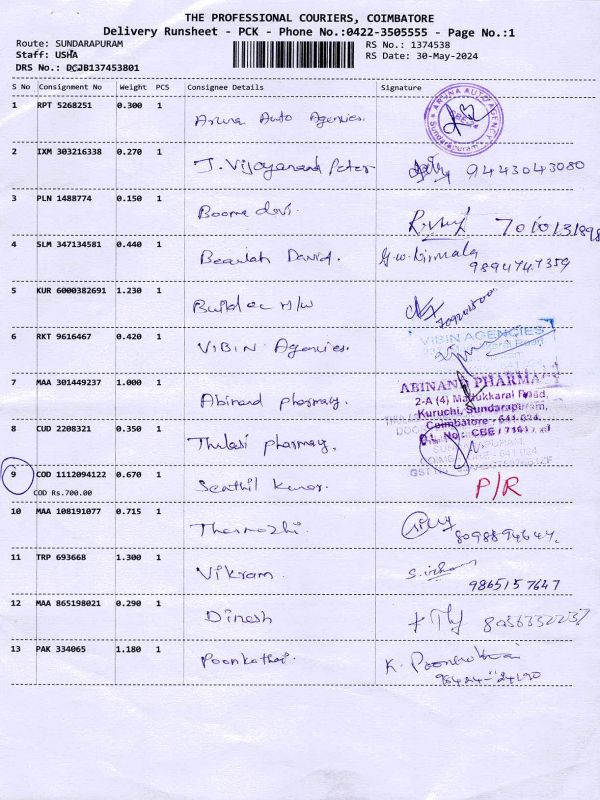 THE PROFESSIONAL COURIERS, COIMBATORE
Delivery Runsheet - PCK - Phone No.:0422-3505555 - Page No.:1
Route: SUNDARAPURAM RS No.: 1374538
Staff: USHA RS Date: 30-May-2024
DRS No.: DCJB137453801
S No Consignment No Weight PCS Consignee Details Signature
1 RPT 5268251 0.300 1 Aruna Auto Agencies.
2 IXM 303216338 0.270 1 J. Vijayanand Peter 9443043080
3 PLN 1488774 0.150 1 Booma devi.
4 SLM 347134581 0.440 1 Beaulah David. 9894747359
5 KUR 6000382691 1.230 1 Build ec H/W
6 RKT 9616467 0.420 1 VIBIN Agencies.
VIBIN AGENCIES
7 MAA 301449237 1.000 1 Abinand pharmacy.
ABINAND PHARMA
2-A (4) Mattukkarai Road,
Kuruchi, Sundarapuram,
Coimbatore - 641 024.
8 CUD 2208321 0.350 1 Thulasi pharmacy.
9 COD 1112094122 0.670 1 Senthil Kumar. P/R
COD Rs.700.00
10 MAA 108191077 0.715 1 Thenmozhi 8098894647.
11 TRP 693668 1.300 1 Vikram. 9865157647
12 MAA 865198021 0.290 1 Dinesh
13 PAK 334065 1.180 1 Poonkothai. K. Poonkothai